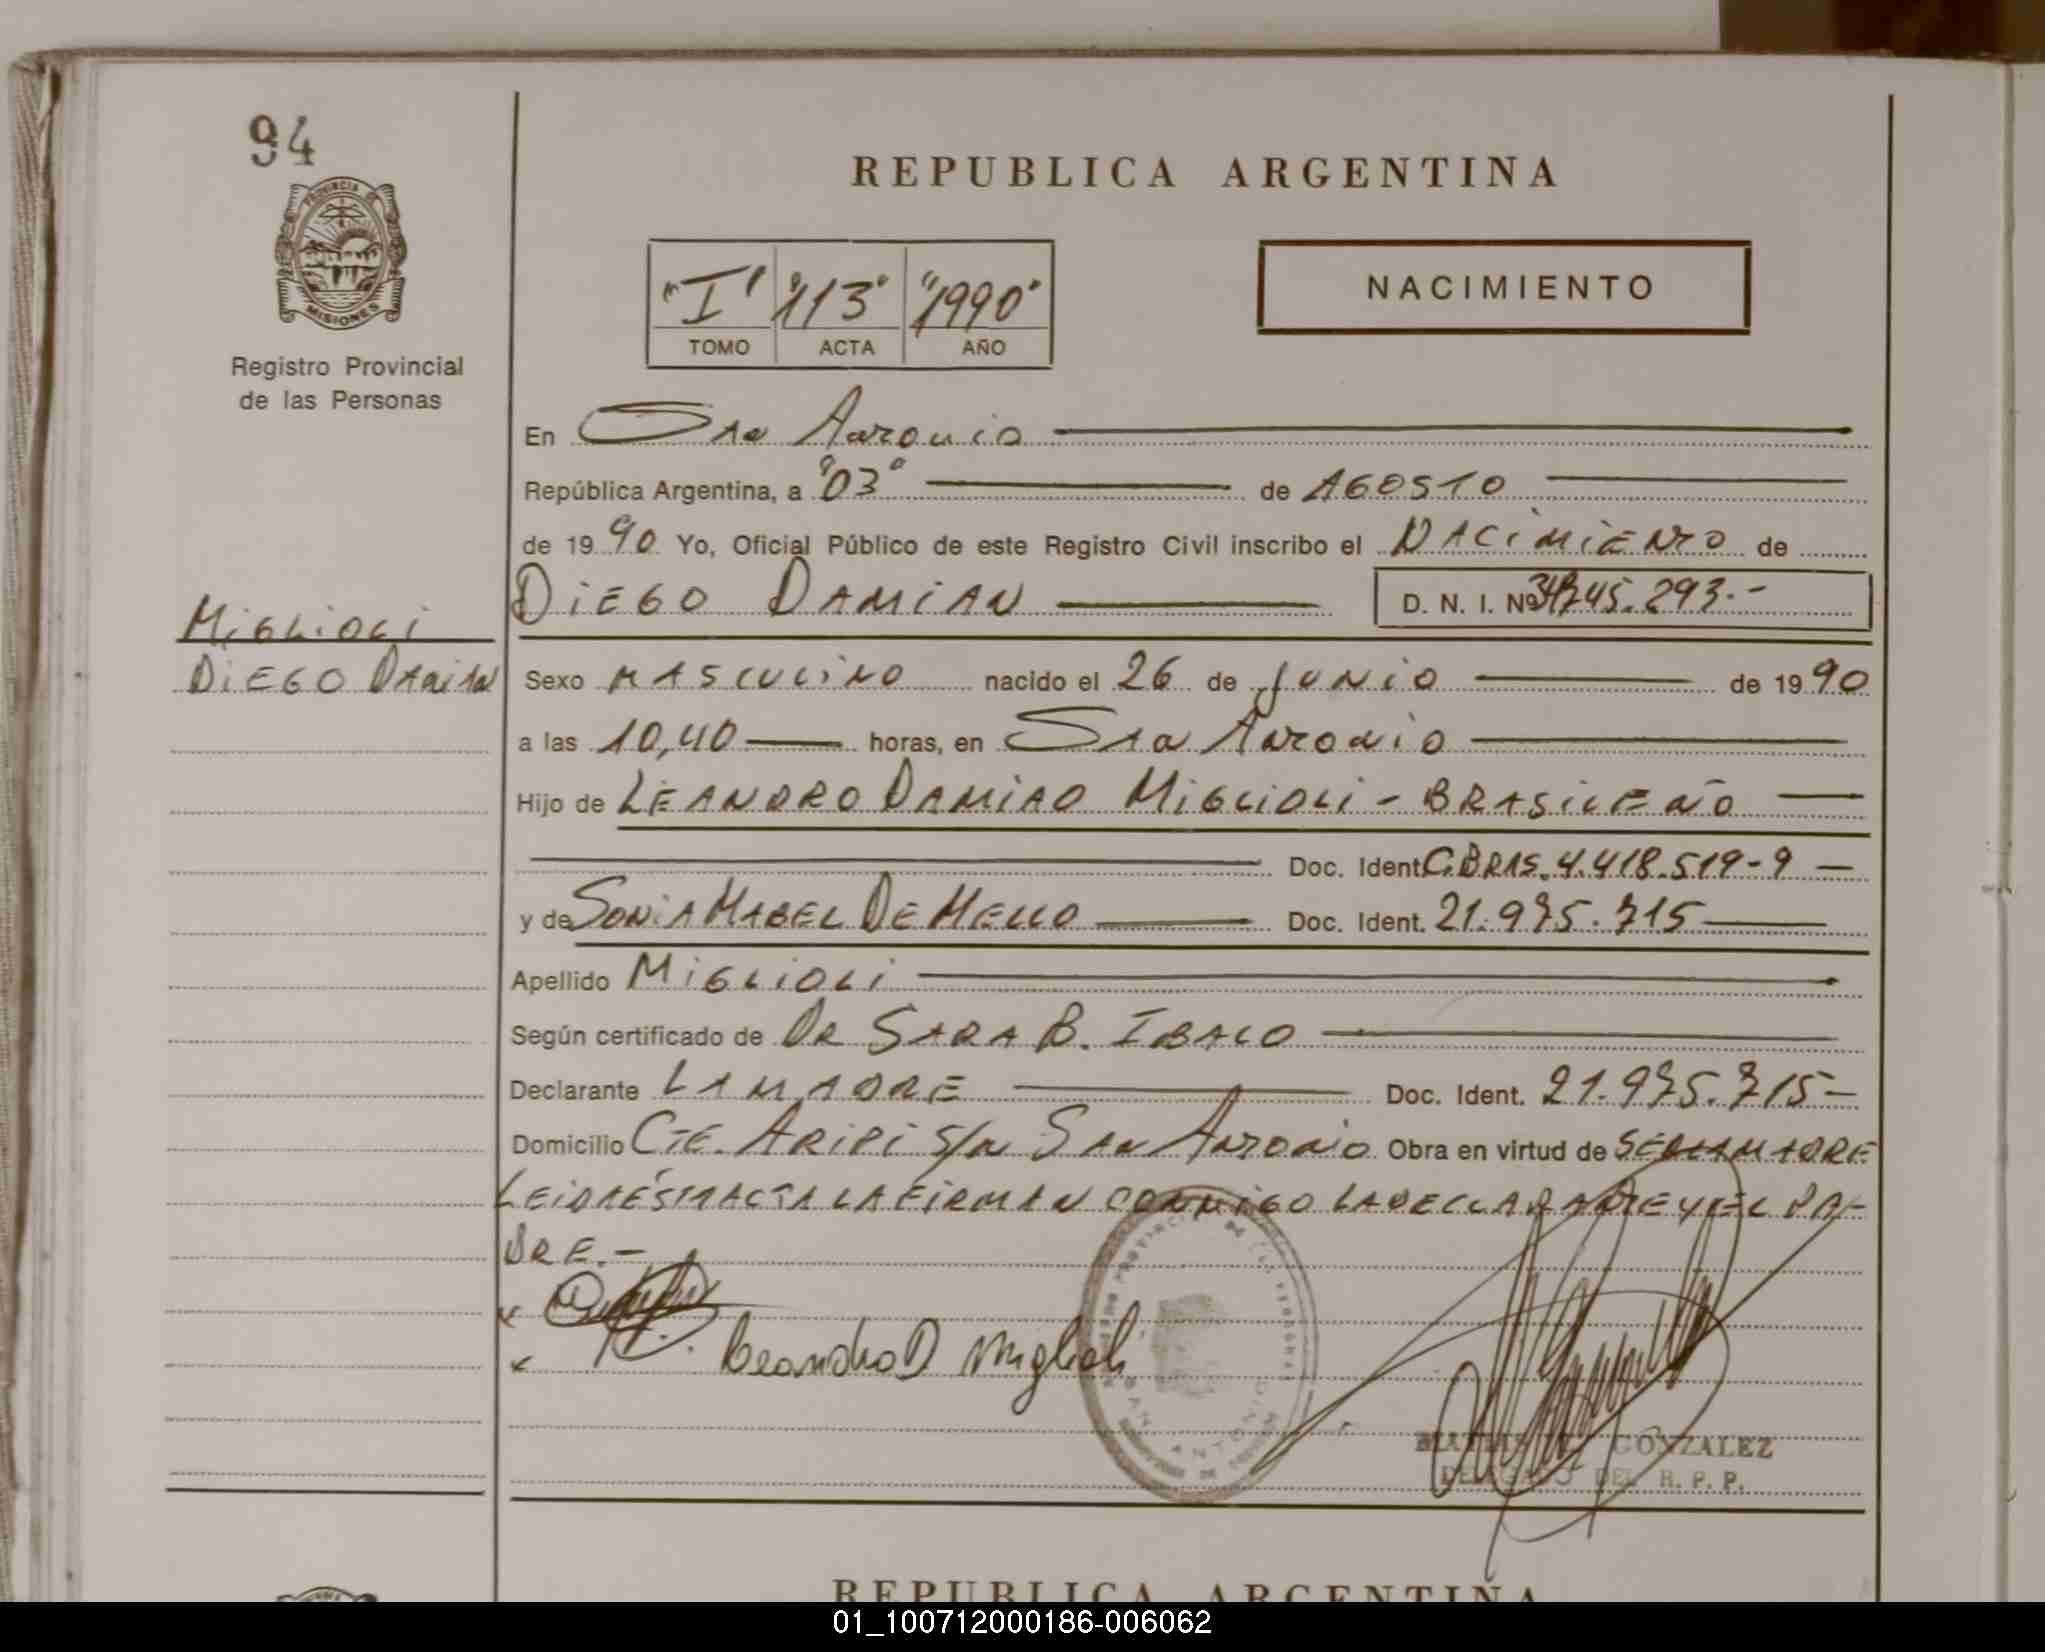 94
PROVINCIA DE
MISIONES
Registro Provincial
de las Personas
REPUBLICA ARGENTINA
"I" "113" "1990"
TOMO ACTA AÑO
NACIMIENTO
En San Antonio
República Argentina, a "03" de AGOSTO
de 1990 Yo, Oficial Público de este Registro Civil inscribo el NACIMIENTO de
DIEGO DAMIAN D. N. I. Nº
MIGLIOLI
DIEGO DAMIAN
Sexo MASCULINO nacido el 26 de JUNIO de 1990
a las 10,40 horas, en San Antonio
Hijo de LEANDRO DAMIAO MIGLIOLI - BRASILEÑO
Doc. Ident. C.BRAS. 4.418.519-9
y de SONIA MABEL DE MELLO Doc. Ident. 21.975.715
Apellido MIGLIOLI
Según certificado de DR SARA B. IBALO
Declarante LA MADRE Doc. Ident. 21.975.715-
Domicilio CTE. ARIPI S/N SAN ANTONIO Obra en virtud de SER LA MADRE
LEIDA ESTA ACTA LA FIRMAN CONMIGO LA DECLARANTE Y EL PA-
DRE.-
Leandro D Miglioli
SAN ANTONIO
GONZALEZ
DELEGADO DEL R. P. P.
REPUBLICA ARGENTINA
01_100712000186-006062